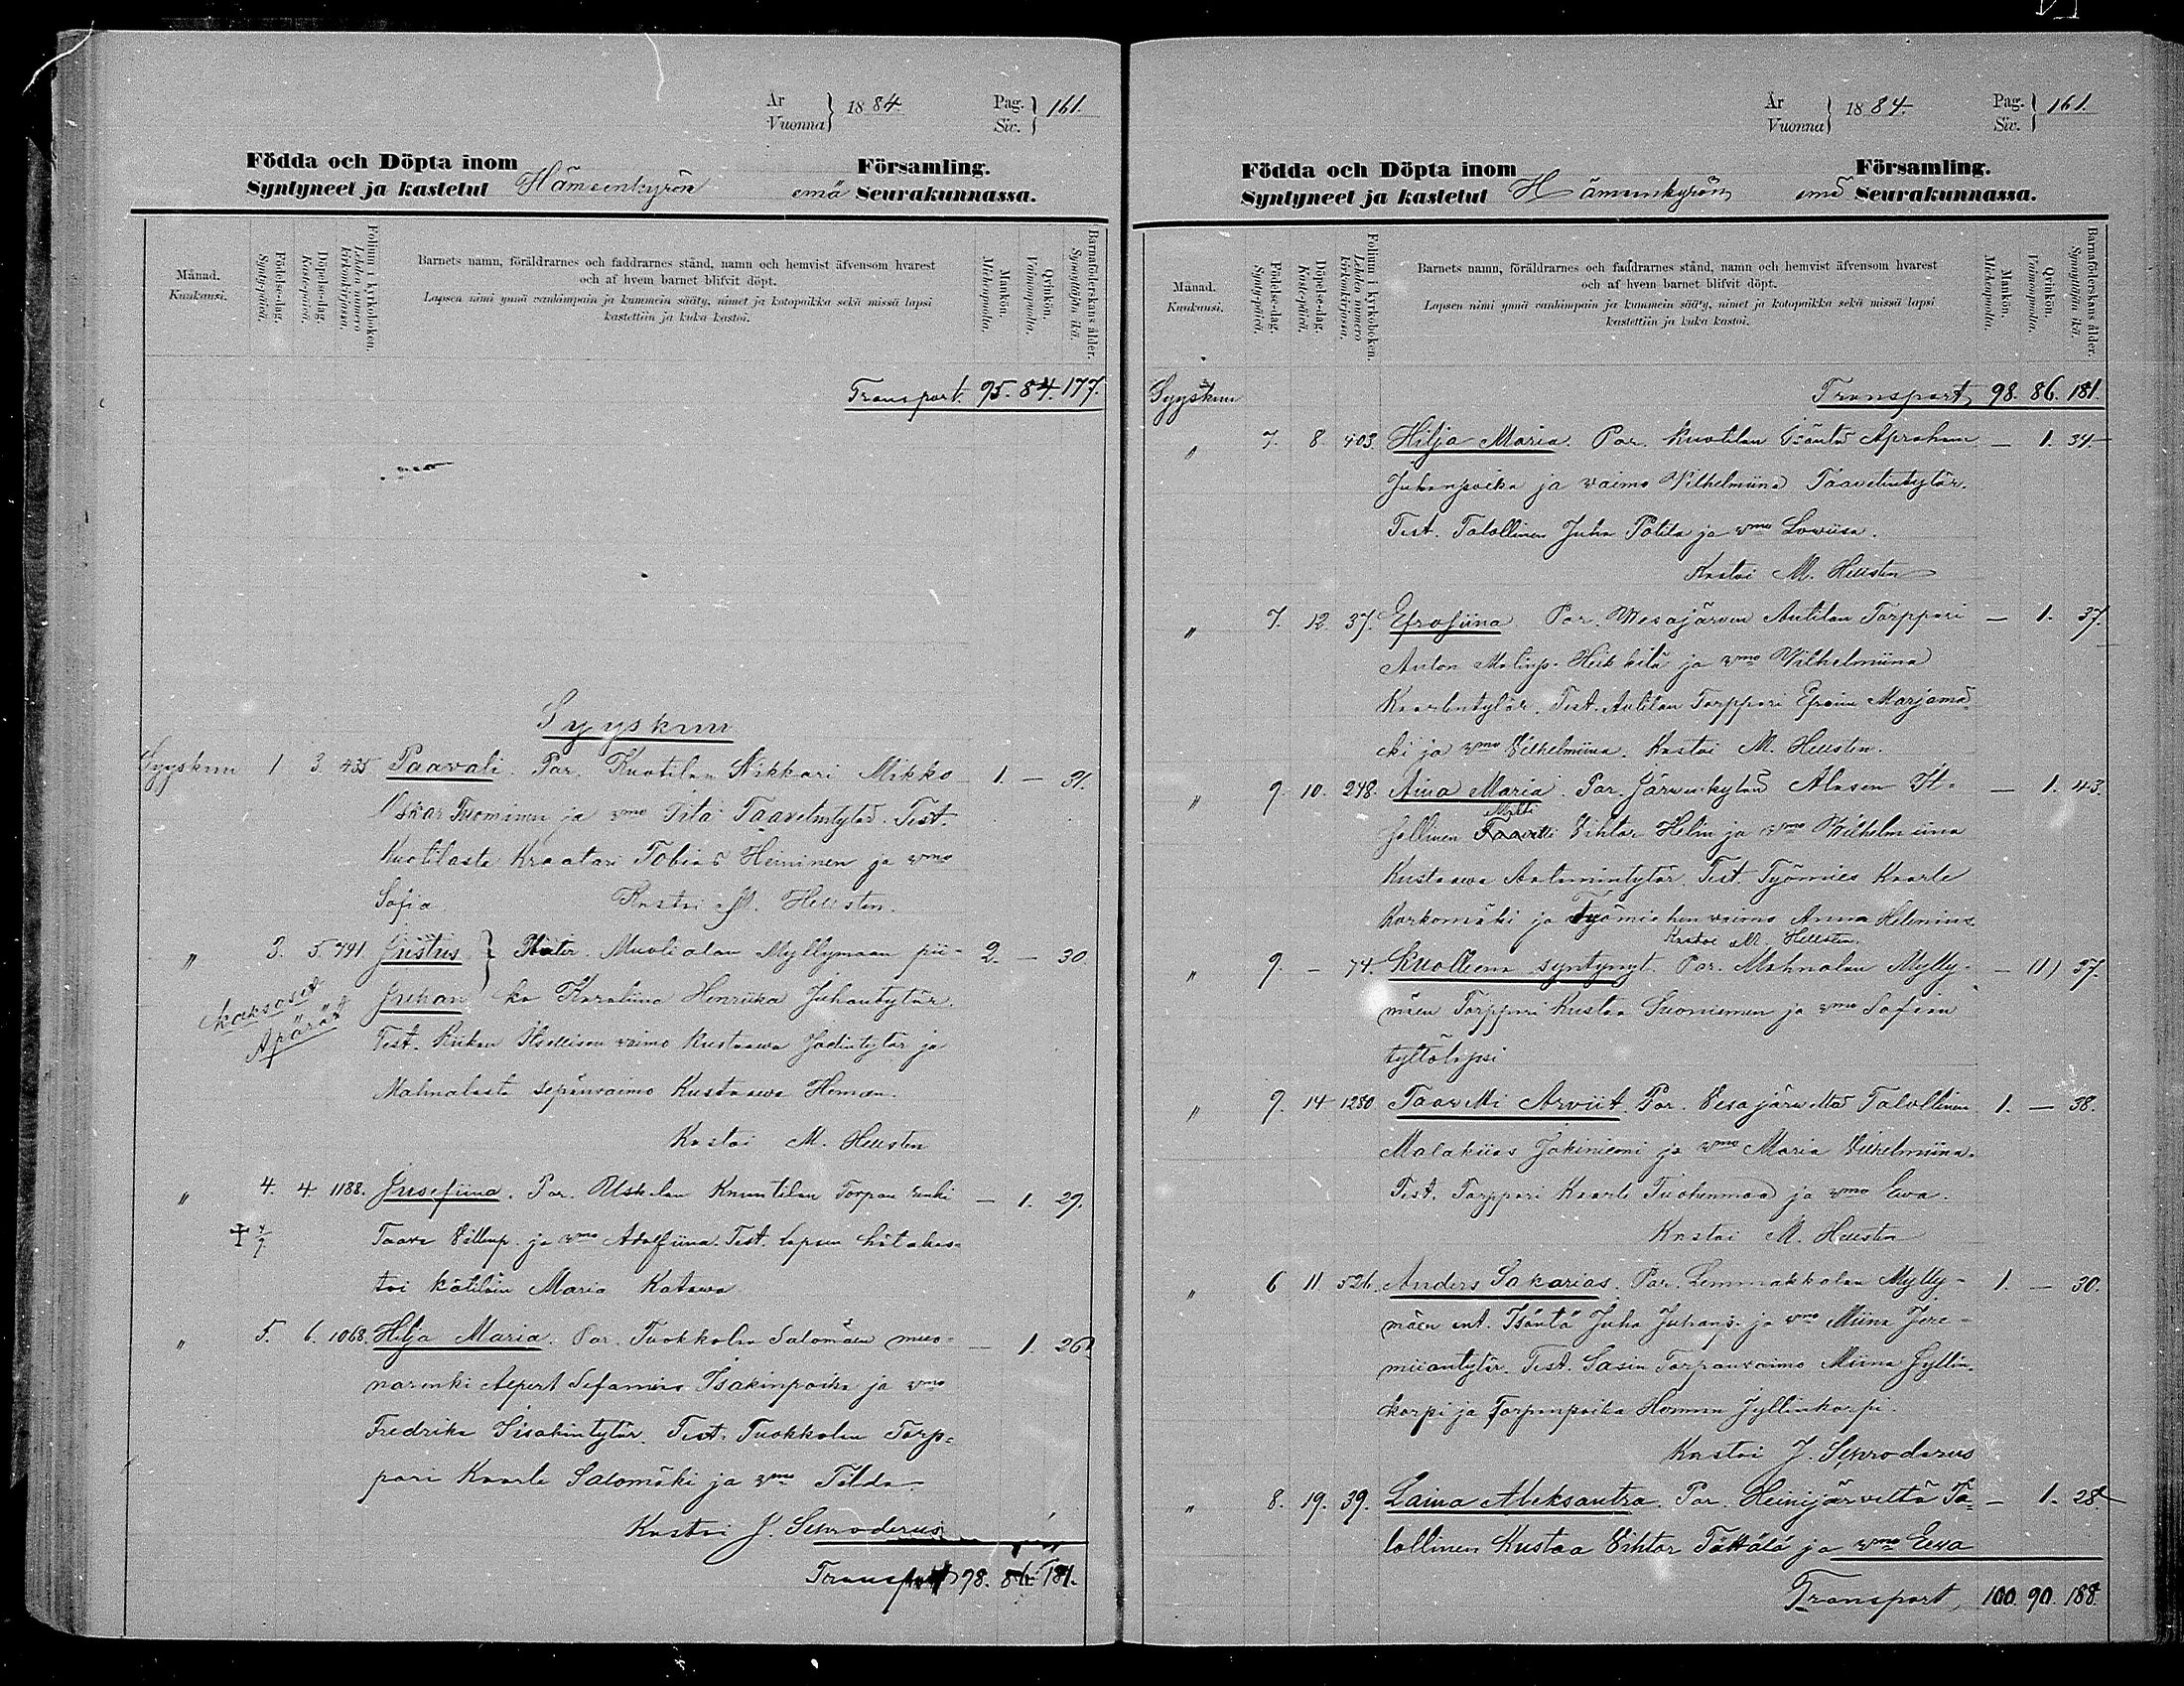 År
Vuonna } 1884. Pag.
Siv. } 161.
Födda och Döpta inom Församling.
Syntyneet ja kastetut Hämeenkyrön emä Seurakunnassa.
Månad.
Kuukausi.
Födelse-dag.
Syntypäivä.
Döpelse-dag.
Kastepäivä.
Folium i kyrkoboken.
Lehden numero
kirkonkirjassa.
Barnets namn, föräldrarnes och faddrarnes stånd, namn och hemvist äfvensom hvarest
och af hvem barnet blifvit döpt.
Lapsen nimi ynnä vanhimpain ja kummein sääty, nimet ja kotopaikka sekä missä lapsi
kastettiin ja kuka kastoi.
Mankön.
Miehenpuolia.
Qvinkön.
Vaimonpuolia.
Barnaföderskans ålder.
Synnyttäjän ikä.
Transport. 95. 84. 177.
Syyskuu
Syyskuu 1 3. 435 Paavali. Par. Kuotilan Nikkari Mikko 1. — 31.
Oskar Tuominen ja vmo Tita Taavetintytär. Test.
Kuotilasta Kraatari Tobias Heininen ja vmo
Sofia Kastoi M. Hellsten.
" 3. 5. 791. Justus } Mater. Muolialan Myllymaan pii- 2. — 30.
Juhan } ka Karoliina Henriika Juhantytär.
kaksoset
Äpärät
Test. Itsellisen vaimo Kustaava ja
Mahnalasta sepänvaimo Kustaava Heman.
Kastoi M. Hellsten
" 4. 4 1188. Jusefiina. Par. Uskelan Knuutilan Torpan Renki — 1. 29.
Taave Villep. ja vmo Adolfiina. Test. lapsen hätäkas-
toi kätilöin Maria Katawa
" 5. 6. 1068. Hilja Maria. Par. Tuokkolan Salomäen muo- — 1. 26.
narenki Alpert Sefanias Isakinpoika ja vmo
Fredrika Iisakintytär. Test. Tuokkolan Torp-
pari Kaarle Salomäki ja vmo Tilda.
Kastoi J. Schroderus
Transport 98. 86. 181.
År
Vuonna } 1884. Pag.
Siv. } 161.
Födda och Döpta inom Församling.
Syntyneet ja kastetut Hämeenkyrön emä Seurakunnassa.
Månad.
Kuukausi.
Födelse-dag.
Syntypäivä.
Döpelse-dag.
Kastepäivä.
Folium i kyrkoboken.
Lehden numero
kirkonkirjassa.
Barnets namn, föräldrarnes och faddrarnes stånd, namn och hemvist äfvensom hvarest
och af hvem barnet blifvit döpt.
Lapsen nimi ynnä vanhimpain ja kummein sääty, nimet ja kotopaikka sekä missä lapsi
kastettiin ja kuka kastoi.
Mankön.
Miehenpuolia.
Qvinkön.
Vaimonpuolia.
Barnaföderskans ålder.
Synnyttäjän ikä.
Syyskuu Transport, 98. 86. 181.
" 7. 8 403. Hilja Maria. Par. Kuotilan Isäntä Apraham — 1. 34
Juhanpoika ja vaimo Vilhelmiina Taavetintytär.
Test. Talollinen Juha Potila ja vmo Lowiisa.
Kastoi M. Hellsten
" 7. 12. 37. Efrosiina Par. Wesajärven Anttilan Torppari — 1. 37.
Anton Matinp. Heikkilä ja vmo Vilhelmiina
Kaarlentytär. Test. Anttilan Torppari Efraim Marjamä-
ki ja vmo Vilhelmiina. Kastoi M. Hellsten.
" 9. 10. 248. Aina Maria. Par. Järvenkylän Alasen It- — 1. 43.
sellinen Taavetti Vihtor Helin ja vmo Vilhelmiina
Kustaava Antamintytär. Test. Työmies Kaarle
Korkomäki ja Työmiehen vaimo Anna
Kastoi M. Hellsten.
" 9. — 74. Kuolleena syntynyt. Par. Mahnalan Mylly- — (1) 37.
mäen Torppari Kustaa Suoniemen ja vmo Sofian
tyttölapsi
" 9. 14 1280 Taavetti Arviit. Par. Vesajärveltä Talollinen 1. — 38.
Malakias Jokiniemi ja vmo Maria Vilhelmiina.
Test. Torppari Kaarle Tuohenmaa ja vmo Ewa.
Kastoi M. Hellsten
" 6 11. 526. Anders Sakarias. Par. Lemmakkalan Mylly- 1. — 30.
mäen ent. Isäntä Juha Juhanp. ja vmo Miina Jere-
miiantytär. Test. Sasin Torpanvaimo Miina Jyllin-
korpi ja Torpanpoika Herman Jyllinkorpi.
Kastoi J. Schroderus
" 8. 19. 39. Laina Aleksantra. Par. Heinijärveltä Ta- — 1. 28
lollinen Kustaa Vihtor Töttölä ja vmo Eeva
Transport, 100. 90. 188.